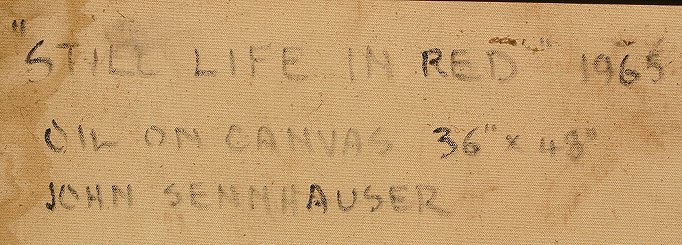 "STILL LIFE IN RED" 1965
OIL ON CANVAS 36" x 48"
JOHN SENNHAUSER